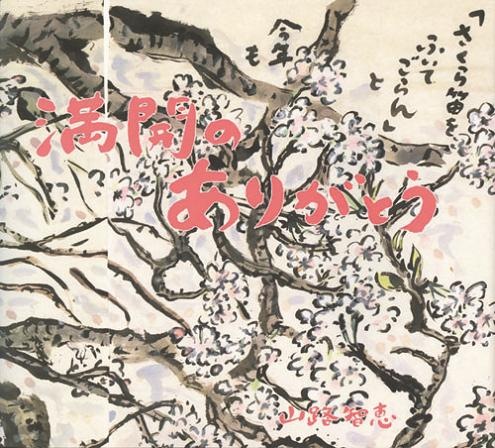 「さくら笛を
ふいて
ごらん」
と
今年
も
満開の
ありがとう
山路智恵